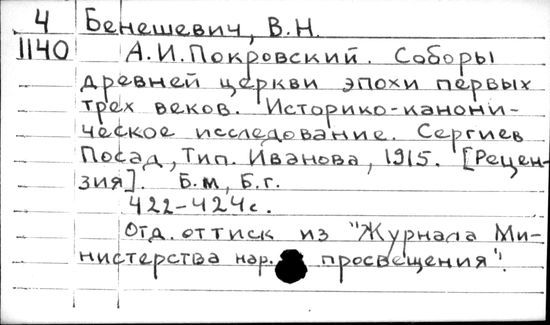 4 Бенешевич, В.Н.
1140 А.И.Покровский. Соборы
древней церкви эпохи первых
трех веков. Историко-канони-
ческое исследование. Сергиев
Посад, Тип. Иванова, 1915. [Рецен-
зия]. Б.м, Б.г.
422-424с.
Отд. оттиск из "Журнала Ми-
нистерства нар. просвещения".